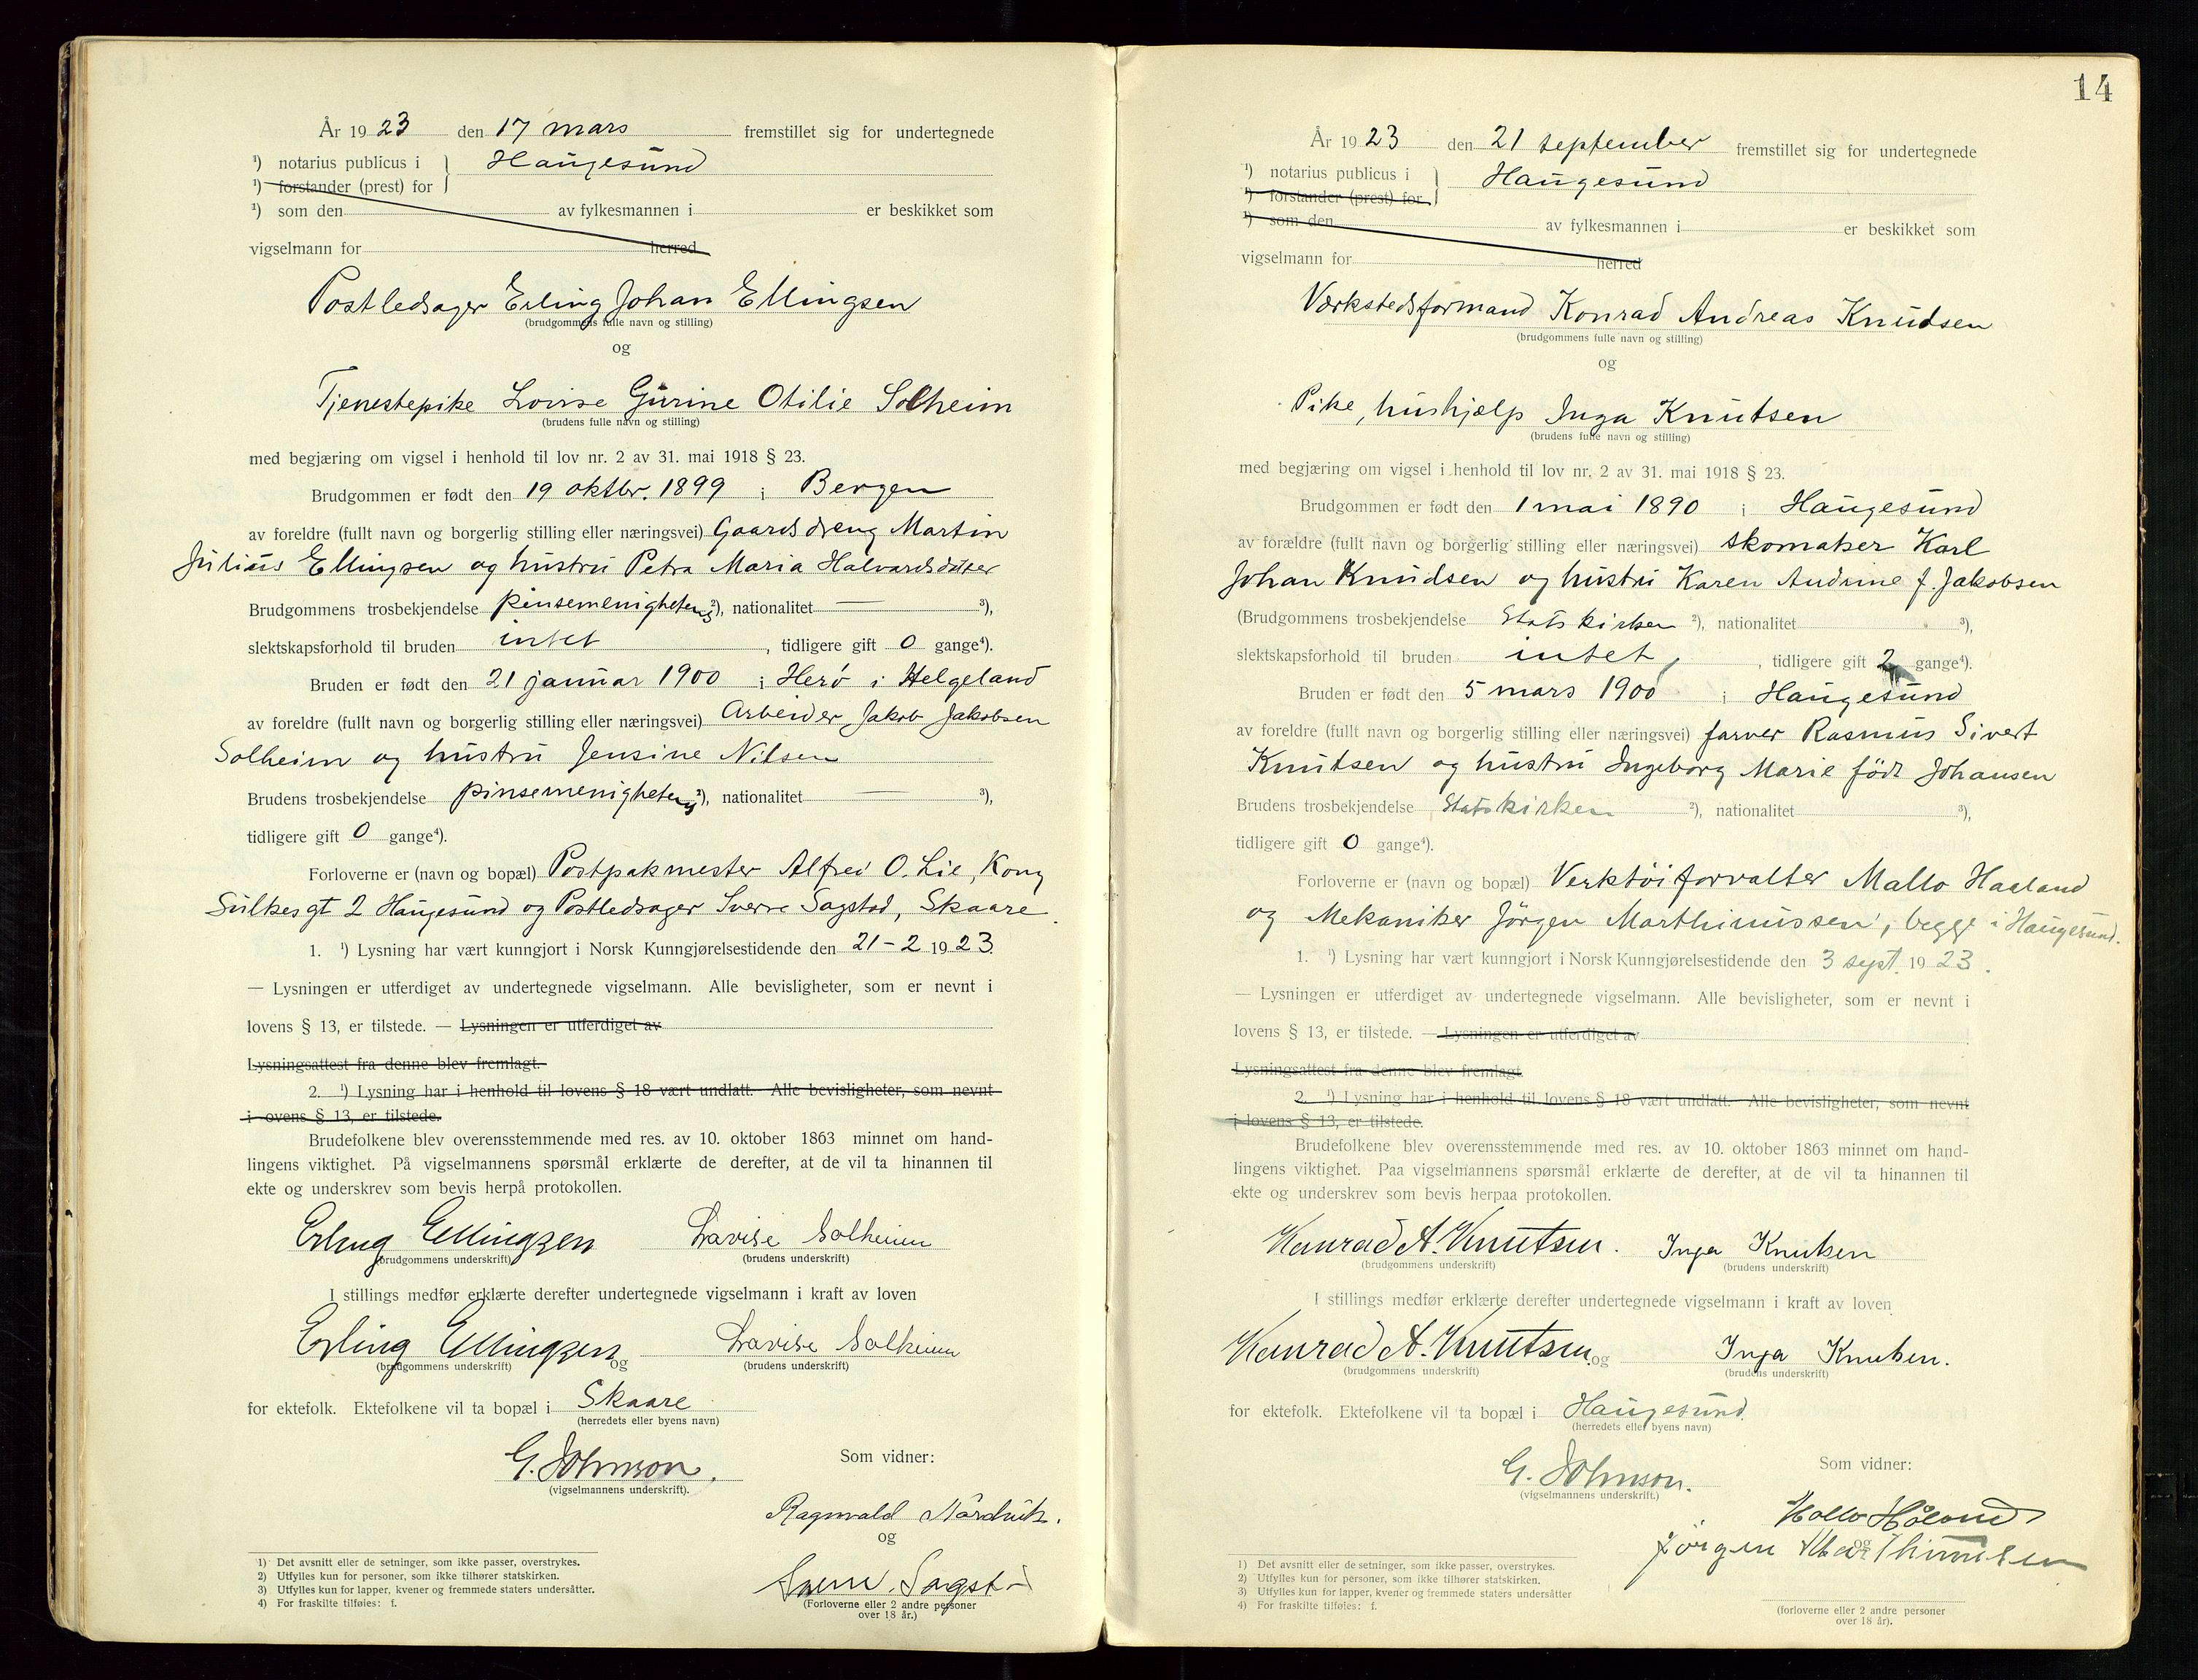 År 1923 den 17 mars fremstillet sig for undertegnede
¹) notarius publicus i } Haugesund
¹) forstander (prest) for
¹) som den av fylkesmannen i er beskikket som
vigselmann for herred
Postledsager Erling Johan Ellingsen
(brudgommens fulle navn og stilling)
og
Tjenestepike Lovise Gurine Otilie Solheim
(brudens fulle navn og stilling)
med begjæring om vigsel i henhold til lov nr. 2 av 31. mai 1918 § 23.
Brudgommen er født den 19 oktbr. 1899 i Bergen
av foreldre (fullt navn og borgerlig stilling eller næringsvei) Gaardsdreng Martin
Julius Ellingsen og hustru Petra Maria Halvardsdatter
Brudgommens trosbekjendelse pinsemenigheten ²), nationalitet — ³),
slektskapsforhold til bruden intet, tidligere gift 0 gange⁴).
Bruden er født den 21 januar 1900 i Herø i Helgeland
av foreldre (fullt navn og borgerlig stilling eller næringsvei) Arbeider Jakob Jakobsen
Solheim og hustru Jensine Nilsen
Brudens trosbekjendelse pinsemenigheten ²), nationalitet — ³),
tidligere gift 0 gange⁴).
Forloverne er (navn og bopæl) Postpakmester Alfred O. Lie, Kong
Sulkesgt 2 Haugesund og Postledsager Sverre Sagstad, Skaare.
1. ¹) Lysning har vært kunngjort i Norsk Kunngjørelsestidende den 21-2 1923.
— Lysningen er utferdiget av undertegnede vigselmann. Alle bevisligheter, som er nevnt i
lovens § 13, er tilstede. — Lysningen er utferdiget av
Lysningsattest fra denne blev fremlagt.
2. ¹) Lysning har i henhold til lovens § 18 vært undlatt. Alle bevisligheter, som nevnt
i ovens § 13, er tilstede.
Brudefolkene blev overensstemmende med res. av 10. oktober 1863 minnet om hand-
lingens viktighet. På vigselmannens spørsmål erklærte de derefter, at de vil ta hinannen til
ekte og underskrev som bevis herpå protokollen.
Erling Ellingsen Lovise Solheim
(brudgommens underskrift) (brudens underskrift)
I stillings medfør erklærte derefter undertegnede vigselmann i kraft av loven
Erling Ellingsen og Lovise Solheim
(brudgommens underskrift) (brudens underskrift)
for ektefolk. Ektefolkene vil ta bopæl i Skaare
(herredets eller byens navn)
G. Johnson. Som vidner:
(vigselmannens underskrift).
Ragnvald Nordvik.
og
Sverre Sagstad
(Forloverne eller 2 andre personer
over 18 år.)
1) Det avsnitt eller de setninger, som ikke passer, overstrykes.
2) Utfylles kun for personer, som ikke tilhører statskirken.
3) Utfylles kun for lapper, kvener og fremmede staters undersåtter.
4) For fraskilte tilføies: f.
14
År 1923 den 21 september fremstillet sig for undertegnede
¹) notarius publicus i } Haugesund
¹) forstander (prest) for
¹) som den av fylkesmannen i er beskikket som
vigselmann for herred
Værkstedsformand Konrad Andreas Knudsen
(brudgommens fulle navn og stilling)
og
Pike, hushjælp Inga Knutsen
(brudens fulle navn og stilling)
med begjæring om vigsel i henhold til lov nr. 2 av 31. mai 1918 § 23.
Brudgommen er født den 1 mai 1890 i Haugesund
av forældre (fullt navn og borgerlig stilling eller næringsvei) skomaker Karl
Johan Knudsen og hustru Karen Andrine f. Jakobsen
(Brudgommens trosbekjendelse Statskirken ²), nationalitet ³),
slektskapsforhold til bruden intet, tidligere gift 2 gange⁴).
Bruden er født den 5 mars 1900 i Haugesund
av foreldre (fullt navn og borgerlig stilling eller næringsvei) farver Rasmus Sivert
Knutsen og hustru Ingeborg Marie født Johansen
Brudens trosbekjendelse Statskirken ²), nationalitet ³),
tidligere gift 0 gange⁴).
Forloverne er (navn og bopæl) Verktöiforvalter Mallo Haaland
og Mekaniker Jörgen Marthinussen, begge i Haugesund.
1. ¹) Lysning har vært kunngjort i Norsk Kunngjørelsestidende den 3 sept. 1923.
— Lysningen er utferdiget av undertegnede vigselmann. Alle bevisligheter, som er nevnt i
lovens § 13, er tilstede. — Lysningen er utferdiget av
Lysningsattest fra denne blev fremlagt.
2. ¹) Lysning har i henhold til lovens § 18 vært undlatt. Alle bevisligheter, som nevnt
i lovens § 13, er tilstede.
Brudefolkene blev overensstemmende med res. av 10. oktober 1863 minnet om hand-
lingens viktighet. Paa vigselmannens spørsmål erklærte de derefter, at de vil ta hinannen til
ekte og underskrev som bevis herpaa protokollen.
Konrad A. Knutsen. Inga Knutsen
(brudgommens underskrift) (brudens underskrift)
I stillings medfør erklærte derefter undertegnede vigselmann i kraft av loven
Konrad A. Knutsen og Inga Knutsen.
(brudgommens underskrift) (brudens underskrift)
for ektefolk. Ektefolkene vil ta bopæl i Haugesund
(herredets eller byens navn)
G. Johnson. Som vidner:
(vigselmannens underskrift.)
Håland
og
Jörgen Marthinussen
(forloverne eller 2 andre personer
over 18 år).
1) Det avsnitt eller de setninger, som ikke passer, overstrykes.
2) Utfylles kun for personer, som ikke tilhører statskirken.
3) Utfylles kun for lapper, kvener og fremmede staters undersåtter
4) For fraskilte tilføies: f.